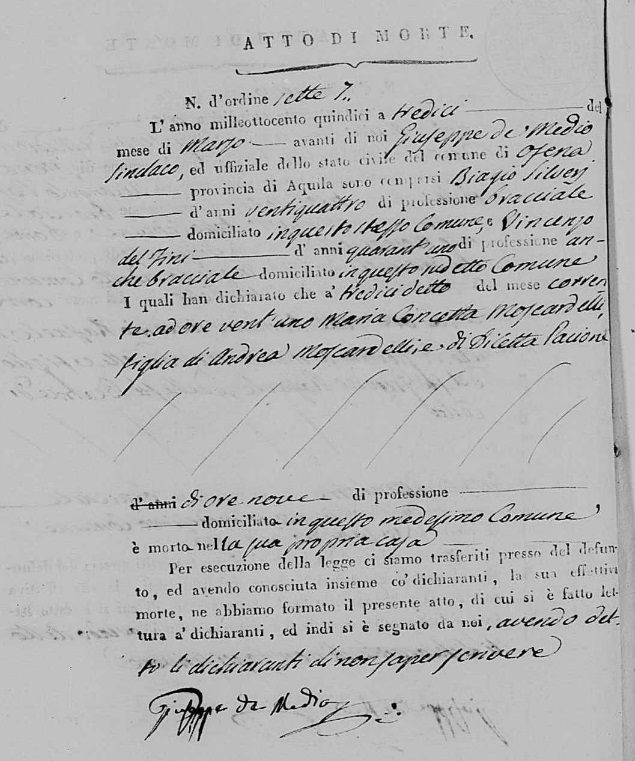 ATTO DI MORTE.
N. d'ordine sette 7.
L'anno milleottocento quindici a tredici del
mese di Marzo avanti di noi Giuseppe de Medio
Sindaco, ed uffiziale dello stato civile del comune di Ofena
provincia di Aquila sono comparsi Biagio Silveri
d'anni ventiquattro di professione bracciale
domiciliato in questo stesso Comune, e Vincenzo
del Fini d'anni quarant'uno di professione an-
che bracciale domiciliato in questo sudetto Comune
I quali han dichiarato che a' tredici detto del mese corren
te ad ore vent'uno Maria Concetta Moscardelli,
figlia di Andrea Moscardelli, e di Diletta Pacione
d'anni di ore nove di professione
domiciliata in questo medesimo Comune
è morta nella sua propria casa
Per esecuzione della legge ci siamo trasferiti presso del defun-
to, ed avendo conosciuta insieme co' dichiaranti, la sua effettiva
morte, ne abbiamo formato il presente atto, di cui si è fatto let-
tura a' dichiaranti, ed indi si è segnato da noi, avendo det-
to li dichiaranti di non saper scrivere
Giuseppe de Medio